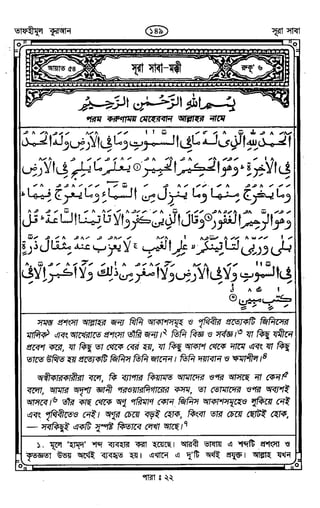 তাফহীমুল কুরআন
১৪৯
সূরা সাবা
আয়াত ৫৪
সূরা সাবা-মক্কী
রুকূ' ৬
بِسْمِ اللهِ الرَّحْمٰنِ الرَّحِيْمِ
পরম করুণাময় মেহেরবান আল্লাহর নামে
اَلْحَمْدُ لِلهِ الَّذِيْ لَهٗ مَا فِي السَّمٰوٰتِ وَمَا فِي الْاَرْضِ وَلَهُ الْحَمْدُ
فِي الْاٰخِرَةِ ؕ وَهُوَ الْحَكِيْمُ الْخَبِيْرُ ① يَعْلَمُ مَا يَلِجُ فِي الْاَرْضِ
وَمَا يَخْرُجُ مِنْهَا وَمَا يَنْزِلُ مِنَ السَّمَآءِ وَمَا يَعْرُجُ فِيْهَا ؕ
وَهُوَ الرَّحِيْمُ الْغَفُوْرُ ② وَقَالَ الَّذِيْنَ كَفَرُوْا لَا تَاْتِيْنَا السَّاعَةُ ؕ قُلْ
بَلٰى وَرَبِّيْ لَتَاْتِيَنَّكُمْ ۙ عٰلِمِ الْغَيْبِ ۚ لَا يَعْزُبُ عَنْهُ مِثْقَالُ ذَرَّةٍ
فِي السَّمٰوٰتِ وَلَا فِي الْاَرْضِ وَلَآ اَصْغَرُ مِنْ ذٰلِكَ وَلَآ اَكْبَرُ اِلَّا فِيْ
كِتٰبٍ مُّبِيْنٍ ③
সমস্ত প্রশংসা আল্লাহর জন্য যিনি আকাশসমূহ ও পৃথিবীর প্রত্যেকটি জিনিসের
মালিক১ এবং আখেরাতে প্রশংসা তাঁরই জন্য।২ তিনি বিজ্ঞ ও সর্বজ্ঞ।৩ যা কিছু যমীনে
প্রবেশ করে, যা কিছু তা থেকে বের হয়, যা কিছু আকাশ থেকে নামে এবং যা কিছু
তাতে উত্থিত হয় প্রত্যেকটি জিনিস তিনি জানেন। তিনি দয়াবান ও ক্ষমাশীল।৪
অস্বীকারকারীরা বলে, কি ব্যাপার কিয়ামত আমাদের ওপর আসছে না কেন!৫
বলো, আমার অদৃশ্য জ্ঞানী পরওয়ারদিগারের কসম, তা তোমাদের ওপর অবশ্যই
আসবে।৬ তাঁর কাছ থেকে অণু পরিমাণ কোন জিনিস আকাশসমূহেও লুকিয়ে নেই
এবং পৃথিবীতেও নেই। অণুর চেয়ে বড়ই হোক, কিংবা তার চেয়ে ছোটই হোক,
— সবকিছুই একটি সুস্পষ্ট কিতাবে লেখা আছে।৭
১. মূলে 'হামদ' শব্দ ব্যবহার করা হয়েছে। আরবী ভাষায় এ শব্দটি প্রশংসা ও
কৃতজ্ঞতা উভয় অর্থেই ব্যবহৃত হয়। এখানে এ দু'টি অর্থই প্রযুক্ত। আল্লাহ যখন
পারা : ২২